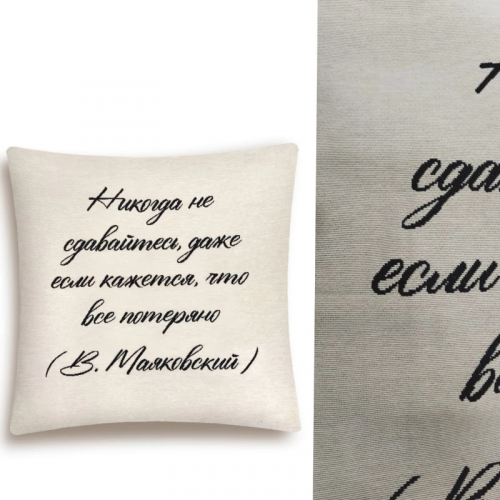 Никогда не
сдавайтесь, даже
если кажется, что
все потеряно
(В. Маяковский)
сда
если
(В